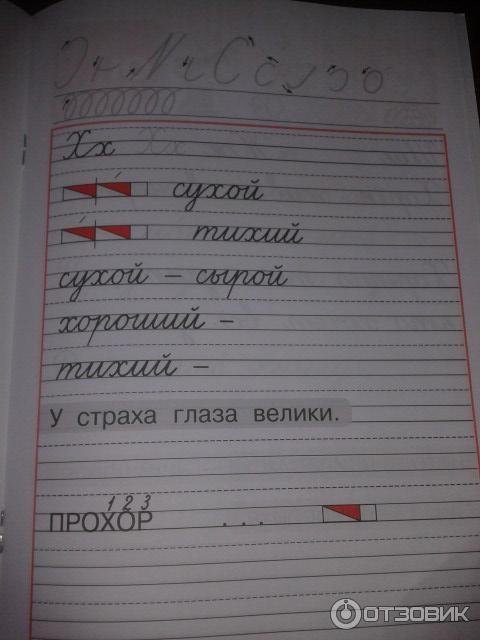 Xx Xx
сухой
тихий
сухой – сырой
хороший –
тихий –
У страха глаза велики.
1 2 3
ПРОХОР . . .
ОТЗОВИК